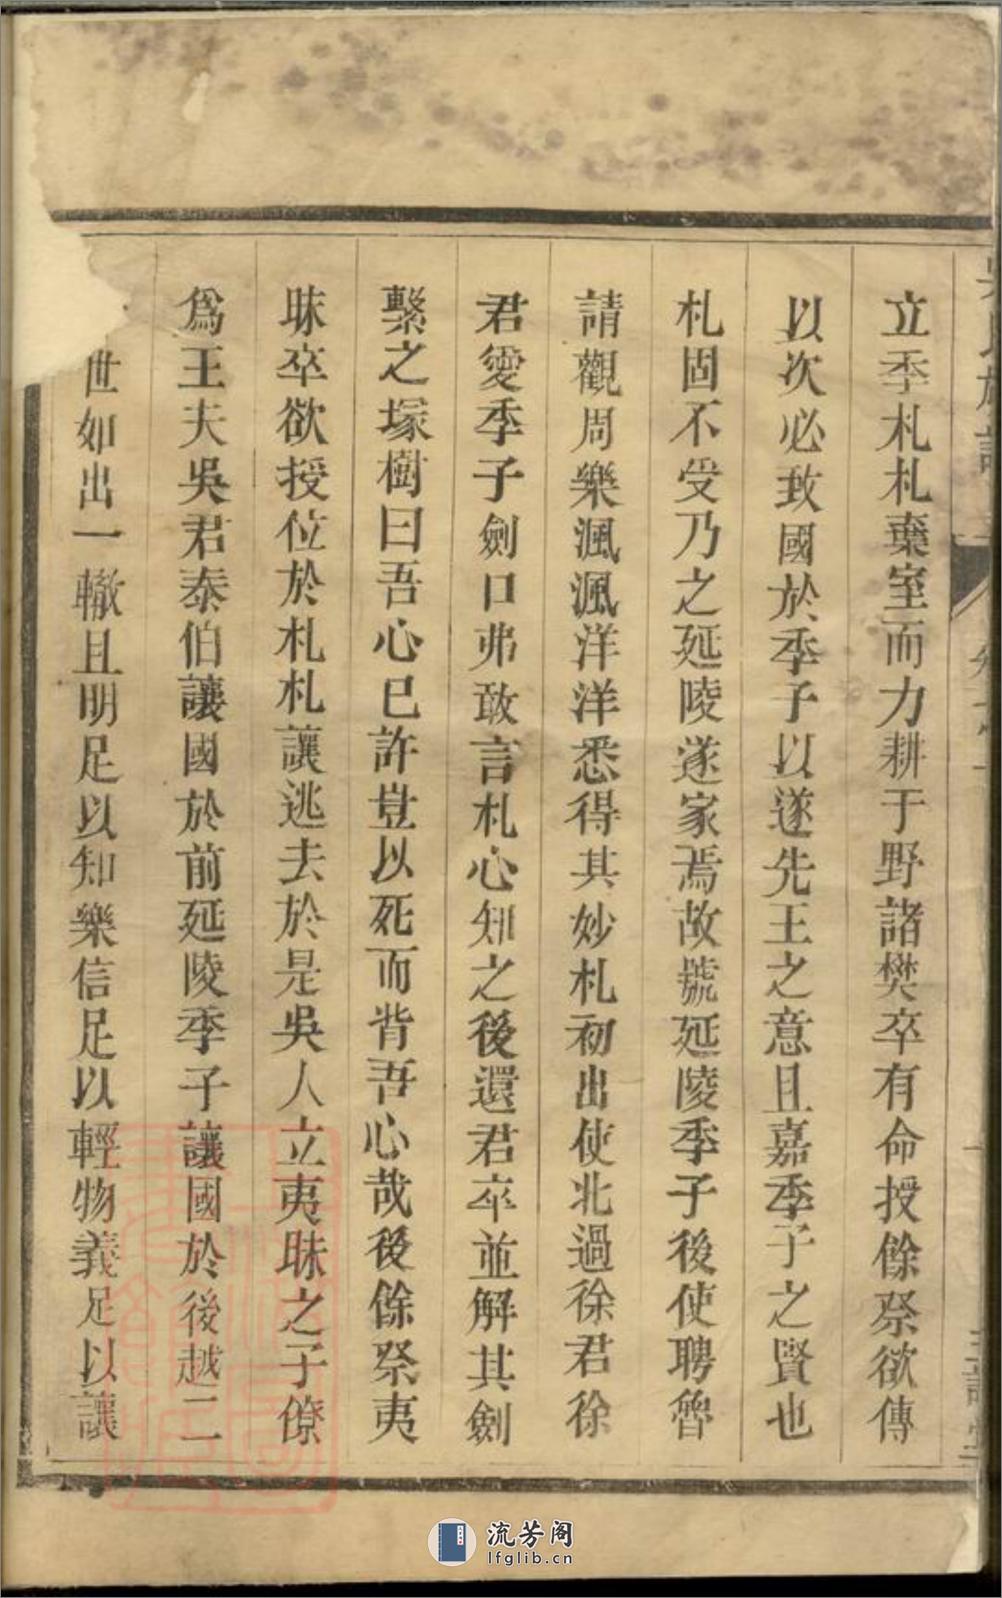 立季札札棄室而力耕于野諸樊卒有命授餘祭欲傳
以次必致國於季子以遂先王之意且嘉季子之賢也
札固不受乃之延陵遂家焉故號延陵季子後使聘魯
請觀周樂渢渢洋洋悉得其妙札初出使北過徐君徐
君愛季子劍口弗敢言札心知之後還君卒並解其劍
繫之塚樹曰吾心已許豈以死而背吾心哉後餘祭夷
昧卒欲授位於札札讓逃去於是吳人立夷昧之子僚
爲王夫吳君泰伯讓國於前延陵季子讓國於後越二
世如出一轍且明足以知樂信足以輕物義足以讓
流芳阁
lfglib.cn